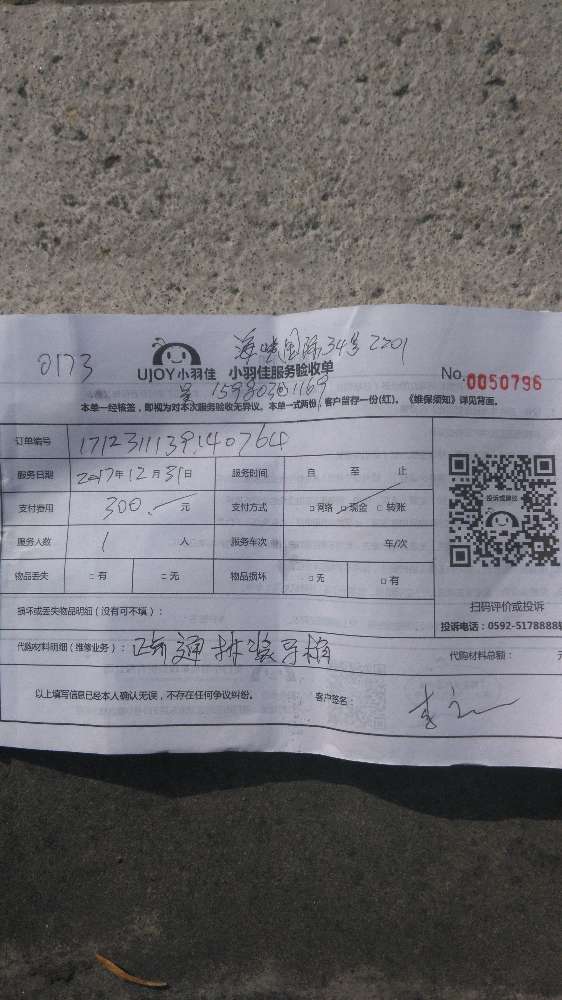 0173
34号2201
UJOY小羽佳 小羽佳服务验收单
No.0050796
本单一经核签，即视为对本次服务验收无异议。本单一式两份，客户留存一份(红)。《维保须知》详见背面。
订单编号
服务日期 2017年12月31日 服务时间 自 至 止
支付费用 300. 元 支付方式 □网络 □现金 □转账
服务人数 1 人 服务车次 车/次
物品丢失 □有 □无 物品损坏 □无 □有
投诉或建议
扫码评价或投诉
投诉电话：0592-5178888
损坏或丢失物品明细（没有可不填）：
代购材料明细（维修业务）： 疏通
代购材料总额： 元
以上填写信息已经本人确认无误，不存在任何争议纠纷。 客户签名：